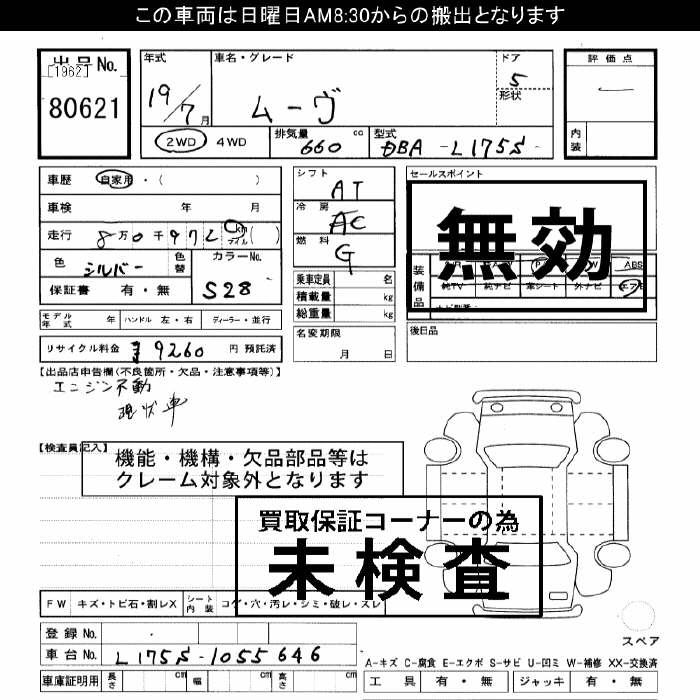 この車両は日曜日AM8:30からの搬出となります
出品No.
[1962]
80621
年式
19/7月
車名・グレード
ムーヴ
ドア
5
形状
評価点
内装
2WD 4WD
排気量 660 cc
型式 DBA-L175S-
車歴 自家用・( )
車検 年 月
走行 8万0千972 km マイル ( )
色 シルバー 色替
カラーNo. S28
保証書 有・無
シフト AT
冷房 AC
燃料 G
乗車定員 名
積載量 kg
総重量 kg
名変期限
月 日
セールスポイント
無効
装備品
ABS
純TV 純ナビ 革シート 外ナビ
後日品
モデル年式 年 ハンドル 左・右 ディーラー・並行
リサイクル料金 ¥9260 円 預託済
【出品店申告欄(不良箇所・欠品・注意事項等)】
エンジン不動
現状車
【検査員記入】
機能・機構・欠品部品等は
クレーム対象外となります
買取保証コーナーの為
未検査
FW キズ・トビ石・割レX シート内装 コゲ・穴・汚レ・シミ・破レ・スレ
登録No.
車台No. L175S-1055646
スペア
A-キズ C-腐食 E-エクボ S-サビ U-凹ミ W-補修 XX-交換済
車庫証明用 長さ cm 幅 cm 高さ cm
工具 有・無 ジャッキ 有・無